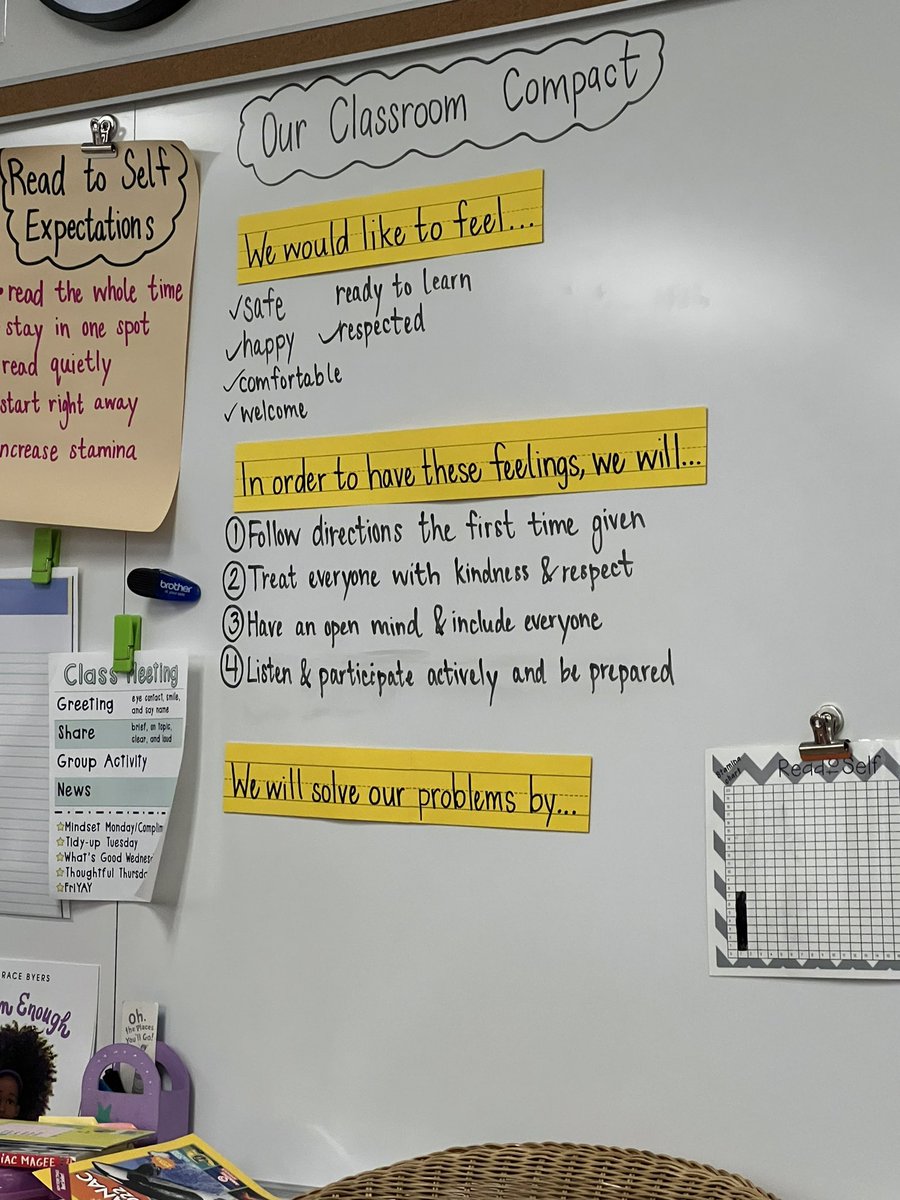 Our Classroom Compact
Read to Self
Expectations
read the whole time
stay in one spot
read quietly
start right away
ncrease stamina
We would like to feel...
✓safe ready to learn
✓happy ✓respected
✓comfortable
✓welcome
In order to have these feelings, we will...
① Follow directions the first time given
② Treat everyone with kindness & respect
③ Have an open mind & include everyone
④ Listen & participate actively and be prepared
We will solve our problems by...
brother
Class Meeting
Greeting eye contact, smile,
and say name
Share brief, on topic,
clear, and loud
Group Activity
News
Mindset Monday/Complim
Tidy-up Tuesday
What's Good Wednes
Thoughtful Thursda
FriYAY
Read to Self
RACE BYERS
m Enough
oh,
the Places
You'll Go!
IAC MAGEE